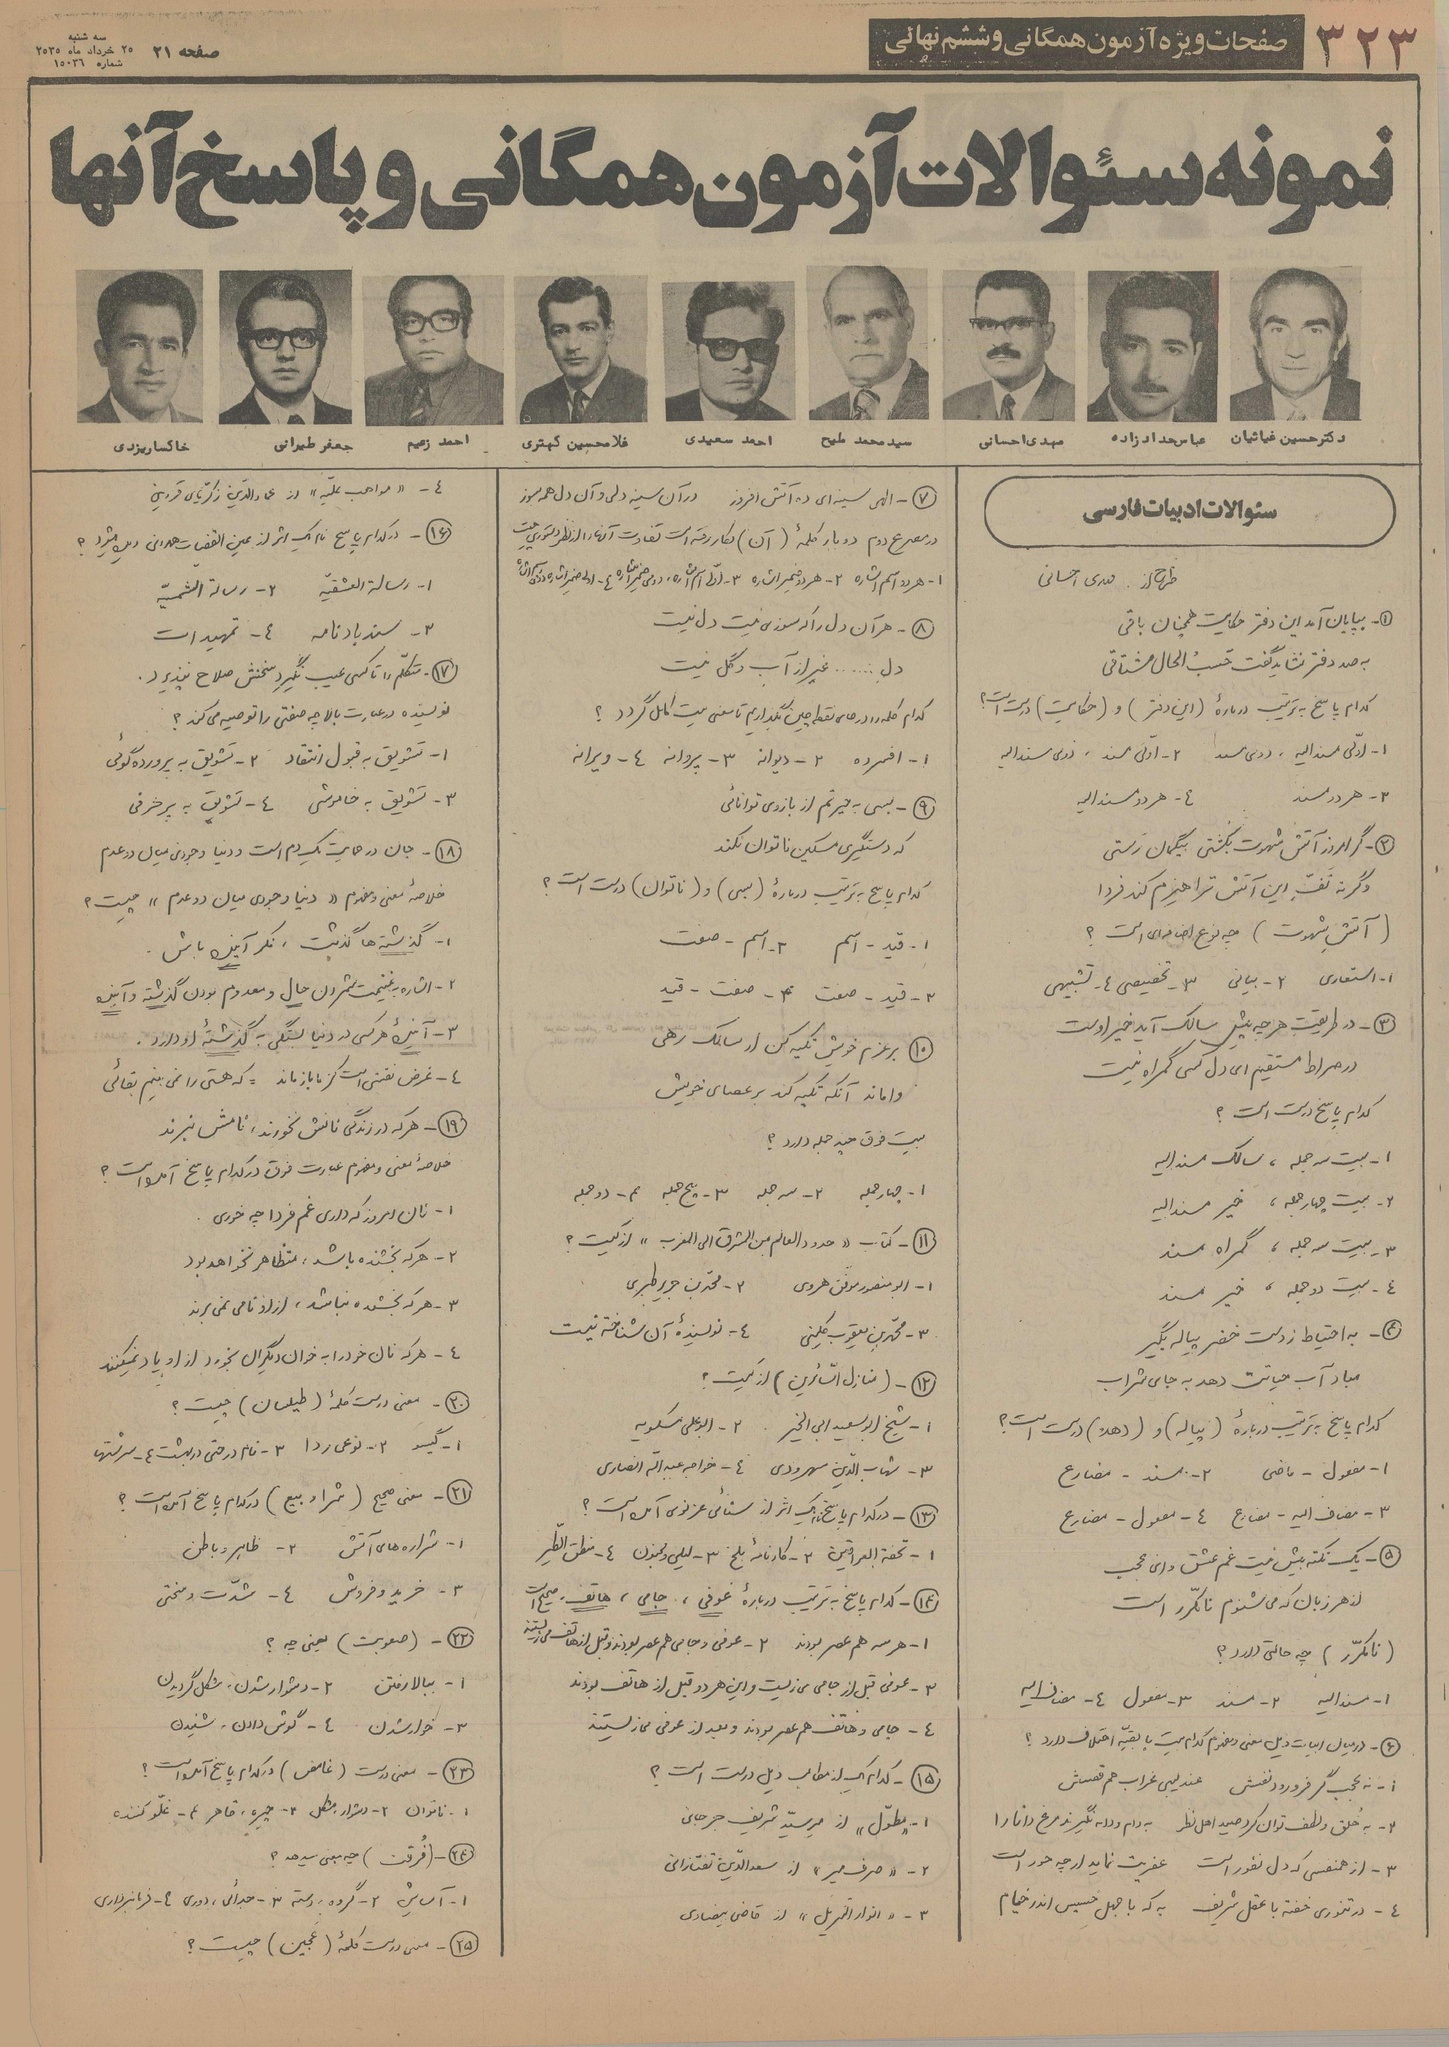 ۳۲۳
صفحات ویژه آزمون همگانی و ششم نهائی
صفحه ۲۱
سه شنبه
۲۵ خرداد ماه ۲۵۳۵
شماره ۱۵۰۳۶
نمونه سئوالات آزمون همگانی و پاسخ آنها
دکتر حسین غیاثیان
عباس حدادزاده
مهدی احسانی
سید محمد ملیح
احمد سعیدی
غلامحسین کهتری
احمد زعیم
جعفر طیرانی
خاکسار یزدی
سئوالات ادبیات فارسی
طرح از . مهدی احسانی
۱- بپایان آمد این دفتر حکایت همچنان باقی
به صد دفتر نشاید گفت حسبُ الحال مشتاقی
کدام پاسخ به ترتیب دربارهٔ (این دفتر) و (حکایت) درست است؟
۱- اوّلی مسندالیه ، دومی مسند ۲- اوّلی مسند ، دومی مسندالیه
۳- هر دو مسند ٤- هر دو مسندالیه
۲- گر امروز آتش شهوت بکُشتی بیگمان رَستی
وگرنه تفّ این آتش ترا هیزم کند فردا
( آتشِ شهوت ) چه نوع اضافه‌ای است ؟
۱- استعاری ۲- بیانی ۳- تخصیصی ٤- تشبیهی
۳- در طریقت هر چه پیش سالک آید خیر اوست
در صراط مستقیم ای دل کسی گمراه نیست
کدام پاسخ درست است ؟
۱- بیت سه جمله ، سالک مسندالیه
۲- بیت چهار جمله ، خیر مسندالیه
۳- بیت سه جمله ، گمراه مسند
٤- بیت دو جمله ، خیر مسند
۴- به احتیاط ز دست خضر پیاله بگیر
مباد آب حیاتت دهد به جای شراب
کدام پاسخ به ترتیب دربارهٔ (پیاله) و (دهد) درست است؟
۱- مفعول - ماضی ۲- مسند - مضارع
۳- مضاف الیه - مضارع ٤- مفعول - مضارع
۵- یک نکته بیش نیست غم عشق و این عجب
از هر زبان که می شنوم نامکرّر است
( نامکرّر ) چه حالتی دارد ؟
۱- مسندالیه ۲- مسند ۳- مفعول ٤- مضاف الیه
۶- در میان ابیات ذیل معنی و مفهوم کدام بیت با بقیّه اختلاف دارد ؟
۱- نه عجب گر فرو رود نفسش عندلیبی غراب هم قفسش
۲- به خُلق و لطف توان کرد صید اهل نظر به دام و دانه نگیرند مرغ دانا را
۳- از همنفسی که دل نفور است عفریت نماید ار چه حور است
٤- در تنوری خفته با عقل شریف به که با جهل خسیس اندر خیام
۷- الهی سینه ای ده آتش افروز در آن سینه دلی و آن دل همه سوز
در مصرع دوم دو بار کلمهٔ (آن) بکار رفته است تفاوت آنها از نظر دستوری چیست
۱- هر دو اسم اشاره ۲- هر دو ضمیر اشاره ۳- اوّلی اسم اشاره ، دومی ضمیر اشاره ٤- اولی ضمیر اشاره دومی اسم اشاره
۸- هر آن دل را که سوزی نیست دل نیست
دل ....... غیر از آب و گل نیست
کدام کلمه را در جای نقطه چین بگذاریم تا معنی بیت کامل گردد ؟
۱- افسرده ۲- دیوانه ۳- پروانه ٤- ویرانه
۹- بسی به حیرتم از بازوی توانائی
که دستگیری مسکین ناتوان نکند
کدام پاسخ به ترتیب دربارهٔ (بسی) و (ناتوان) درست است؟
۱- قید - اسم ۲- اسم - صفت
۳- قید - صفت ۴- صفت - قید
۱۰- بر عزم خویش تکیه کن ار سالک رهی
واماند آنکه تکیه کند بر عصای خویش
بیت فوق چند جمله دارد ؟
۱- چهار جمله ۲- سه جمله ۳- پنج جمله ۴- دو جمله
۱۱- کتاب «حدود العالم من المشرق الی المغرب» از کیست ؟
۱- ابو منصور موفق هروی ۲- محمّد بن جریر طبری
۳- محمّد بن یعقوب کلینی ٤- نویسندهٔ آن شناخته نیست
۱۲- ( منازل السّائرین ) از کیست ؟
۱- شیخ ابوسعید ابی الخیر ۲- ابوعلی مسکویه
۳- شهاب الدّین سهروردی ٤- خواجه عبدالله انصاری
۱۳- در کدام پاسخ نام یک اثر از سنائی غزنوی آمده است ؟
۱- تحفة العراقین ۲- کارنامهٔ بلخ ۳- لیلی و مجنون ٤- منطق الطّیر
۱۴- کدام پاسخ به ترتیب دربارهٔ عوفی ، جامی ، هاتف صحیح است
۱- هر سه هم عصر بودند ۲- عوفی و جامی هم عصر بودند و قبل از هاتف می زیستند
۳- عوفی قبل از جامی می زیست و این هر دو قبل از هاتف بودند
٤- جامی و هاتف هم عصر بودند و بعد از عوفی می زیستند
۱۵- کدام یک از مطالب ذیل درست است ؟
۱- «مطوّل» از میر سیّد شریف جرجانی
۲- «صرف میر» از سعدالدّین تفتازانی
۳- «انوار التنزیل» از قاضی بیضاوی
٤- «مواهب علیّه» از عمادالدّین زکرّیای قزوینی
۱۶- در کدام پاسخ نام یک اثر از عین القضات همدانی دیده میشود ؟
۱- رسالة العشقیّه ۲- رسالة الشمسیّه
۳- سندباد نامه ٤- تمهیدات
۱۷- متکلّم را تا کسی عیب نگیرد سخنش صلاح نپذیرد .
نویسنده در عبارت بالا چه صفتی را توصیه می کند ؟
۱- تشویق به قبول انتقاد ۲- تشویق به پرورده گوئی
۳- تشویق به خاموشی ٤- تشویق به پرحرفی
۱۸- جان در حمایت یک دم است و دنیا وجودی میان دو عدم
خلاصهٔ معنی و مفهوم «دنیا وجودی میان دو عدم» چیست ؟
۱- گذشته ها گذشت ، فکر آینده باش .
۲- اشاره به غنیمت شمردن حال و معدوم بودن گذشته و آینده
۳- آیندهٔ هر کس در دنیا بستگی به گذشتهٔ او دارد .
٤- غرض نقشی است کز ما باز ماند که هستی را نمی بینم بقائی
۱۹- هر که در زندگی نانش نخورند ، نامش نبرند
خلاصهٔ معنی و مفهوم عبارت فوق در کدام پاسخ آمده است ؟
۱- نان امروز که داری غم فردا چه خوری .
۲- هر که بخشنده باشد ، متظاهر نخواهد بود
۳- هر که بخشنده نباشد ، از او نامی نمی برند
٤- هر که نان خود را به خوان دیگران بخورد از او یاد نمیکنند
۲۰- معنی درست کلمهٔ (طیلسان) چیست ؟
۱- گیسو ۲- نوعی ردا ۳- نام درختی در بهشت ٤- سرشتها
۲۱- معنی صحیح (شراء و بیع) در کدام پاسخ آمده است ؟
۱- شراره های آتش ۲- ظاهر و باطن
۳- خرید و فروش ٤- شدّت و سختی
۲۲- (صعوبت) یعنی چه ؟
۱- ببالا رفتن ۲- دشوار شدن ، مشکل گردیدن
۳- خوار شدن ٤- گوش دادن ، شنیدن
۲۳- معنی درست (غامض) در کدام پاسخ آمده است ؟
۱- ناتوان ۲- دشوار ، مشکل ۳- چیره ، قاهر ۴- غلّو کننده
۲۴- (فُرقت) چه معنی میدهد ؟
۱- آسایش ۲- گروه ، دسته ۳- جدائی ، دوری ۴- فرمانبرداری
۲۵- معنی درست کلمهٔ (عجین) چیست ؟